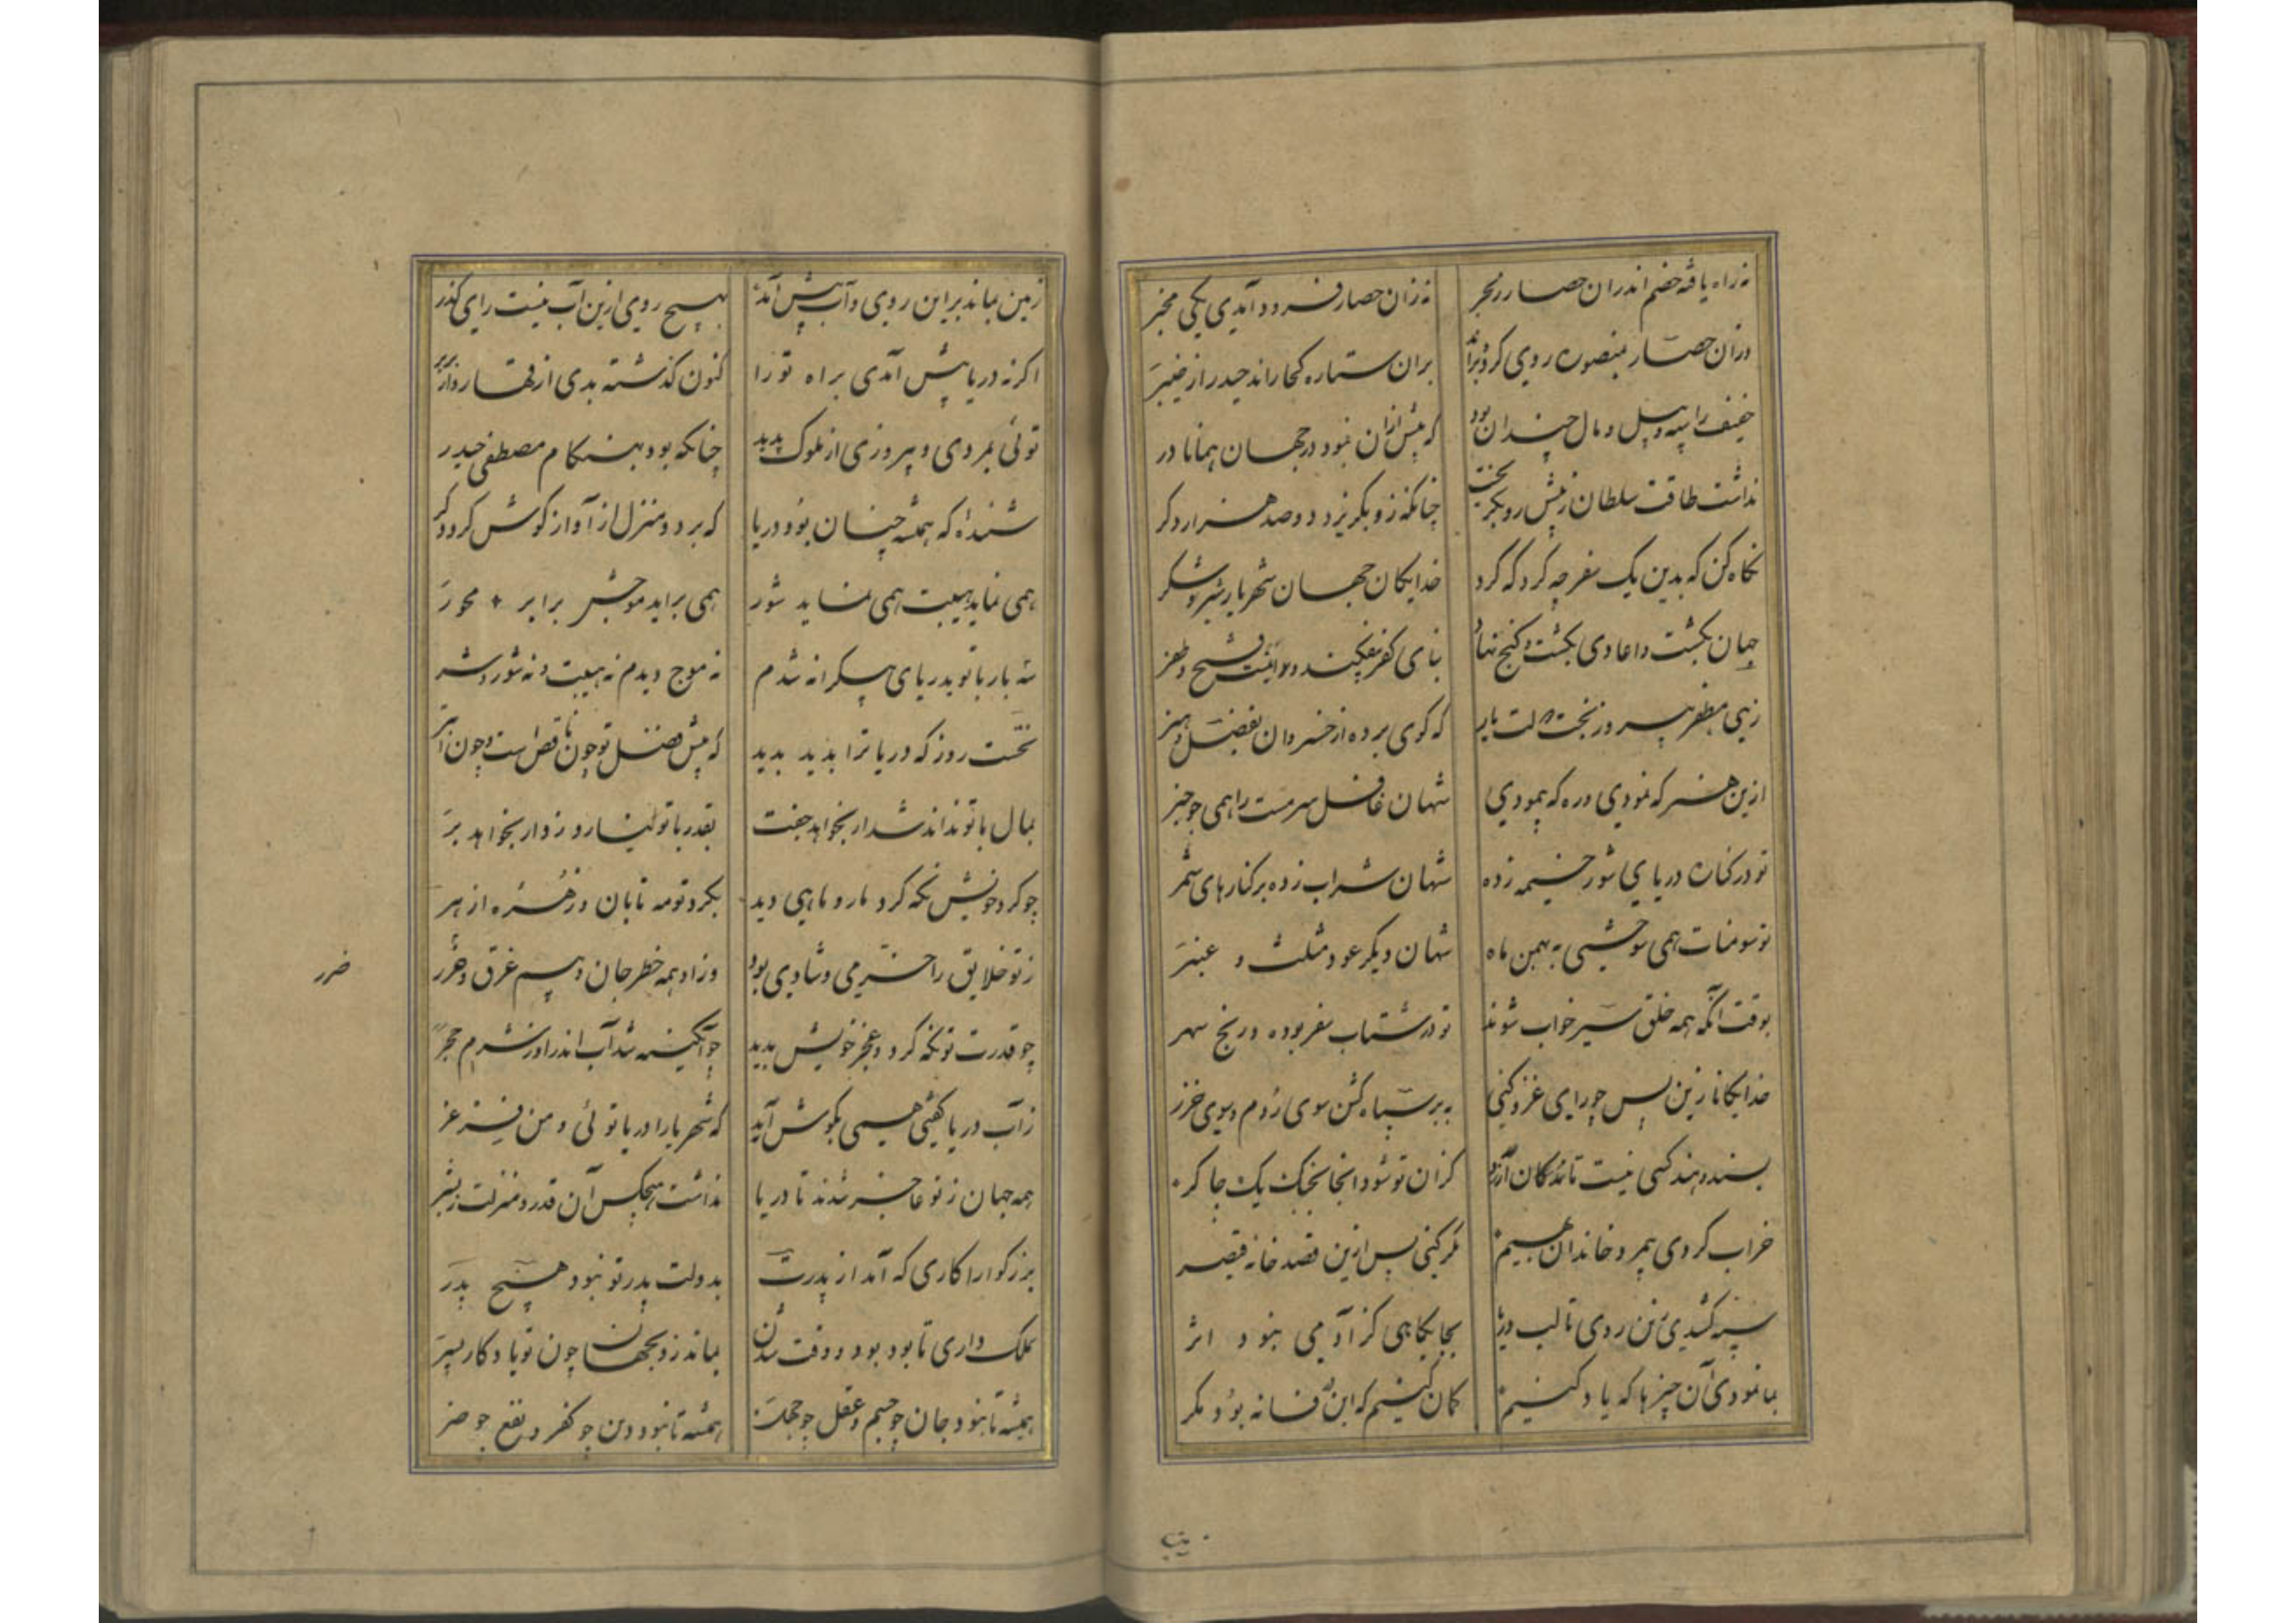 نه راه یافته خصم اندران حصار بجر نه زان حصار فرود آمدی یکی مخبر
دران حصار بمنصوره روی کرد و براند بران ستاره کجا راند حیدر از خیبر
خفیف را سپه و پیل و مال چندان بود که پیش ازان نبود در جهان همانا در
نداشت طاقت سلطان ز پیش رو بگریخت چنانکه زو بگریزد دوصد هزار دگر
نگاه کن که بدین یک سفر چه کرد که کرد خدایگان جهان شهریار شیر شکر
جهان بگشت و اعادی بکشت و گنج نهاد بنای کفر بیفکند و اینت فتح و ظفر
زهی مظفر پیروز بخت دولت یار که گوی برده از خسروان بفضل و هنر
ازین هنر که نمودی و ره که پیمودی شهان غافل سرمست را همی چو خبر
تو در کناره دریای شور خیمه زده شهان شراب زده بر کنارهای شمر
تو سومنات همی سوختی به بهمن ماه شهان دیگر عود مثلث و عنبر
بوقت آنکه همه خلق سیر خواب شوند تو در شتاب سفر بوده و رنج سهر
خدایگانا زین پس چو رای غزو کنی ببر سپاه کشن سوی روم و سوی خزر
بسند و هند کسی نیست مانده کان ارزد کزان تو شود انجا بجنگ یک چاکر
خراب کردی و بیمرد خاندان بهیم مگر کنی پس ازین قصد خانه قیصر
سپه کشیدی زین روی تا لب دریا بجایگاهی کز آدمی نبود اثر
بما نمودی آن چیزها که یاد کنیم گمان کنیم که این فسانه بود مگر
زمین بماند برین روی و آب پیش آمد بهیچ روی ازین آب نیست رای گذر
اگر نه دریا پیش آمدی براه تو را کنون گذشته بدی از قمار و از بربر
توئی بمردی و پیروزی از ملوک پدید چنانکه بود بهنگام مصطفی حیدر
شنیده‌ام که همیشه چنان بود دریا که بر دو منزل از آواز گوش گردد کر
همی نماید هیبت همی فشاند شور همی براید موجش برابر محور
سه بار با تو بدریای بیکرانه شدم نه موج دیدم نه هیبت و نه شور و نه شر
نخست روز که دریا ترا بدید بدید که پیش فضل تو چون ناقص است و چون ابتر
بمال با تو نداند شد ار بخواهد جفت بقدر با تو نیارد زد ار بخواهد بر
چو گرد خویش نگه کرد مار و ماهی دید بگرد تو مه تابان و زهره ازهر
ز تو خلایق را خرمی و شادی بود وزاو همه خطر جان و بیم غرق و غرر
ضرر
چو قدرت تو نگه کرد و عجز خویش بدید چو آبگینه شد آب اندرو ز شرم حجر
ز آب دریا گفتی همی بگوش آید که شهریارا دریا توئی و من فرغر
همه جهان ز تو عاجز شدند تا دریا نداشت هیچکس آن قدر و منزلت ز بشر
بزرگوارا کاری که آمد از پدرت بدولت پدر تو نبود هیچ پدر
بملک داری تا بود بود و وقت شدن بماند زو بجهان چون تو یادگار پسر
همیشه تا نبود جان چو جسم و عقل چو جهل همیشه تا نبود دین چو کفر و نفع چو ضر